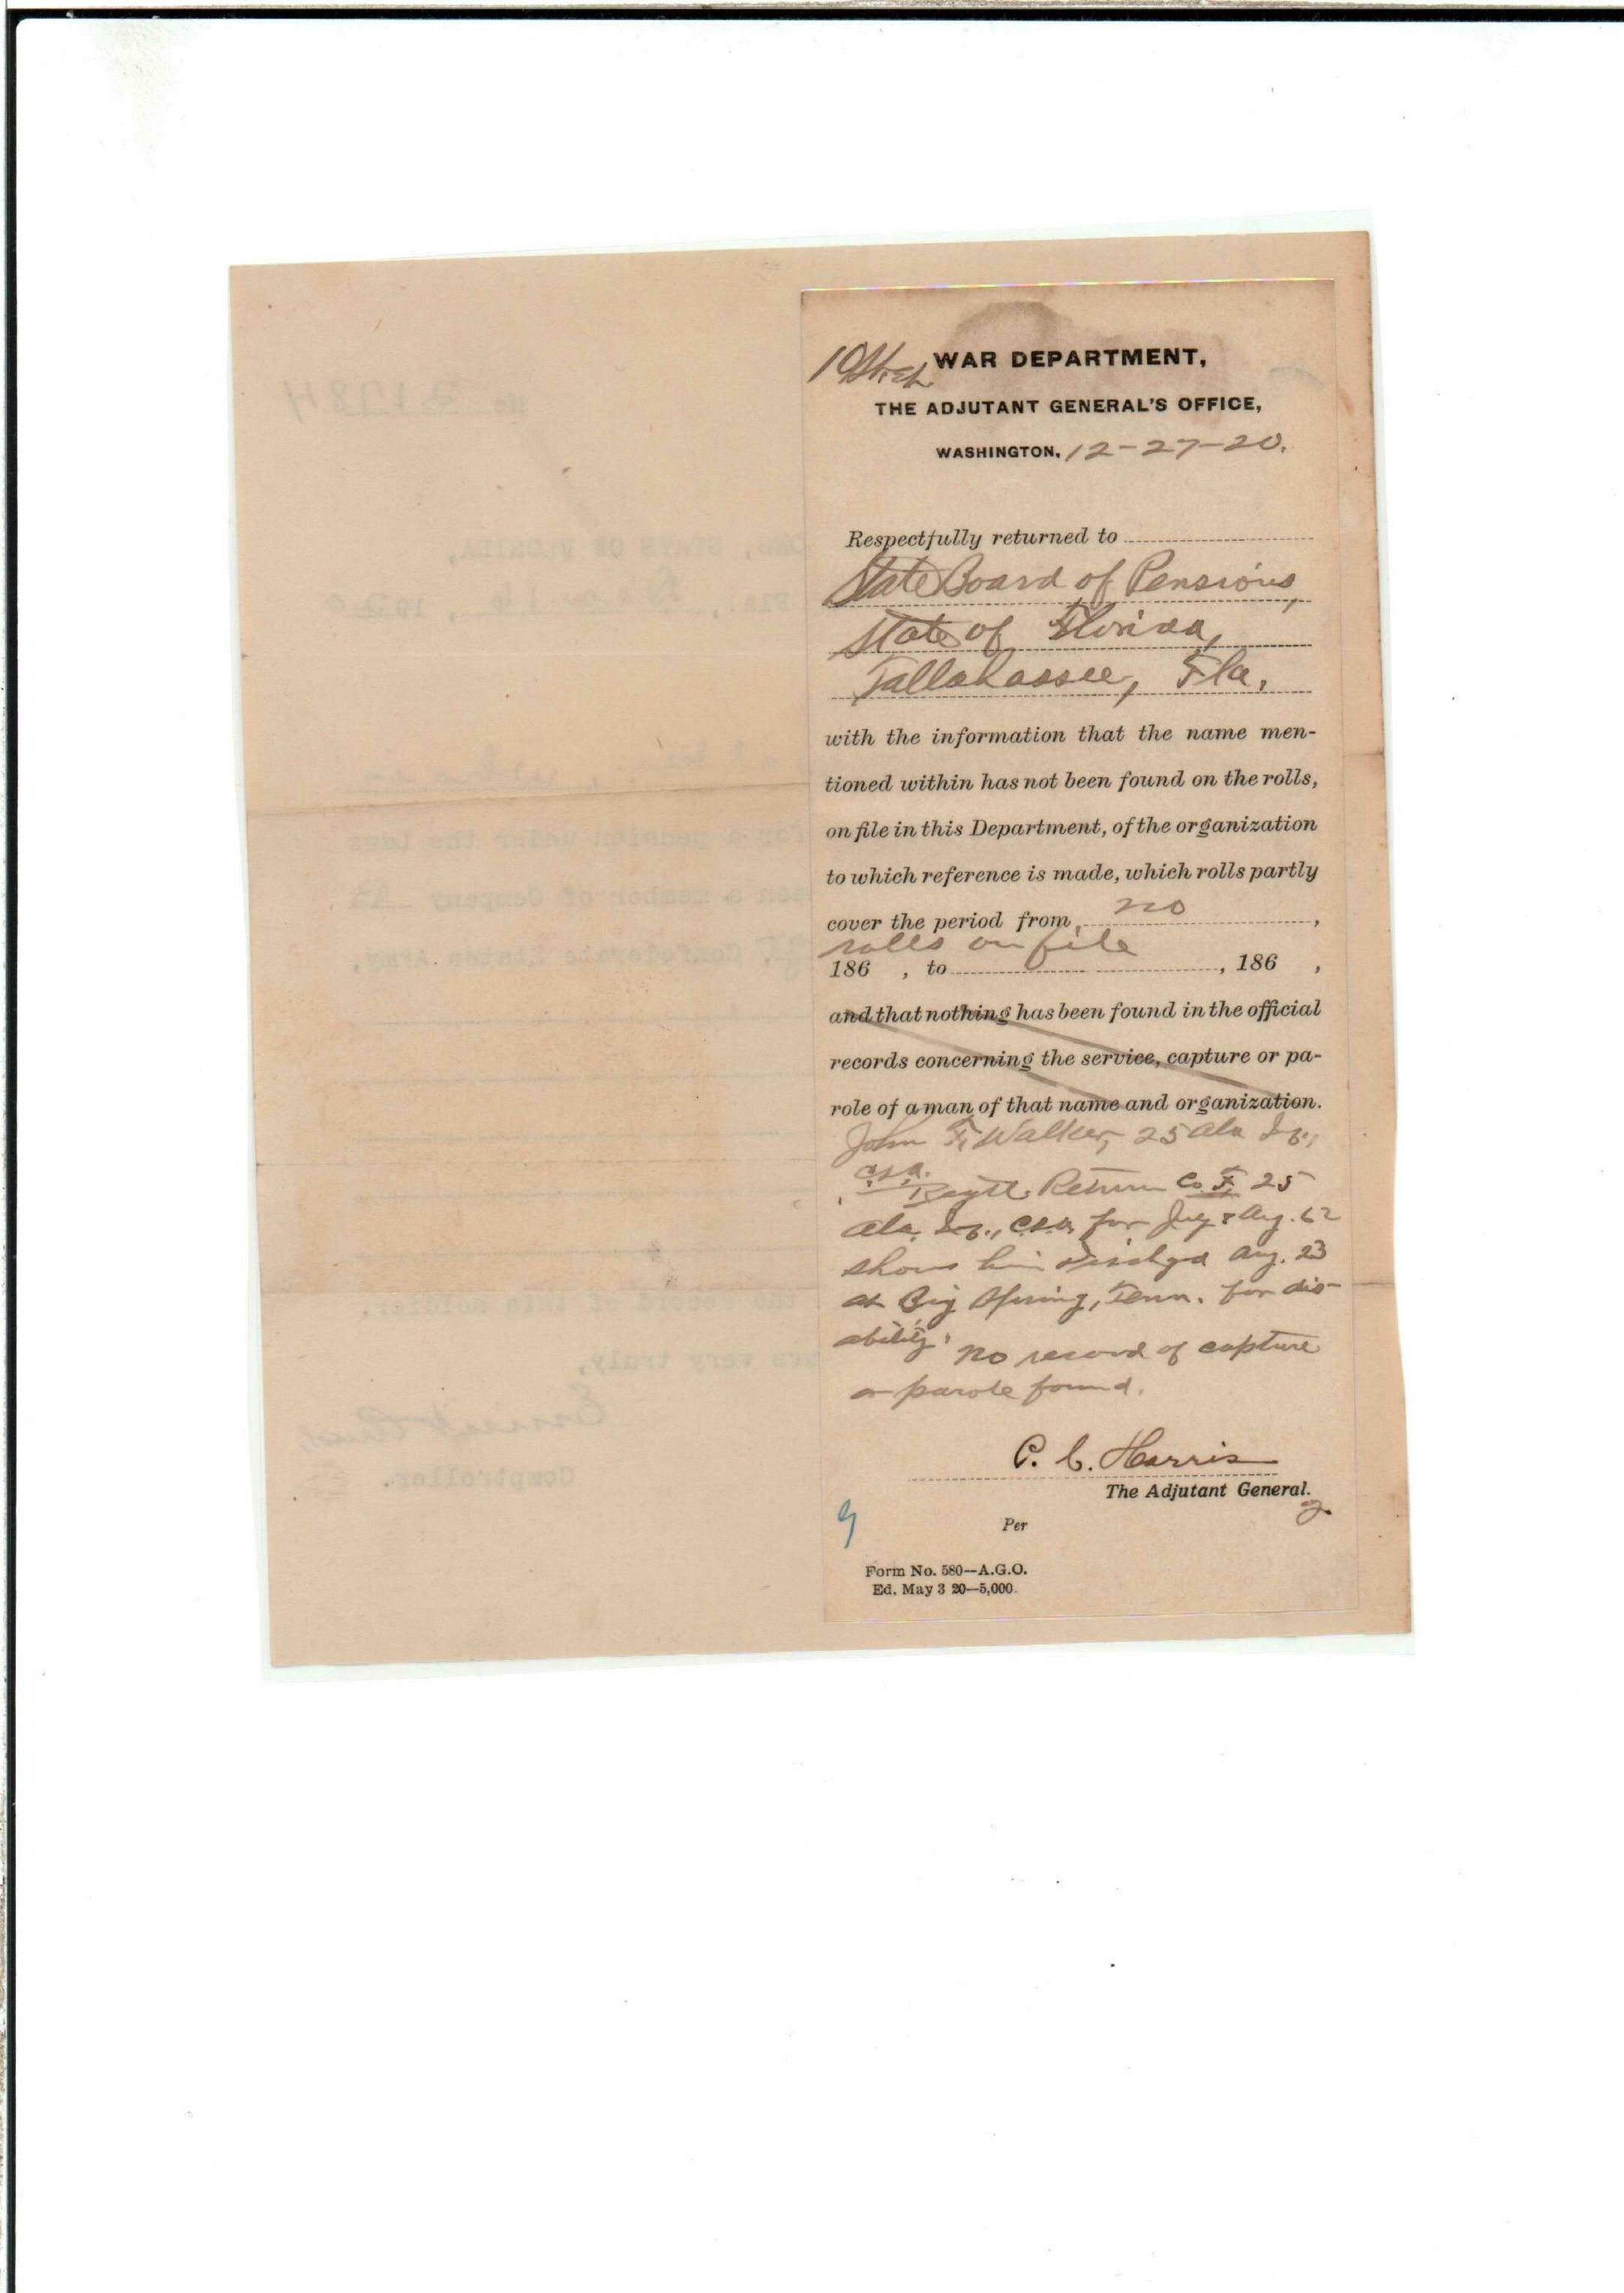 WAR DEPARTMENT,
THE ADJUTANT GENERAL'S OFFICE,
WASHINGTON, 12-27-20.
Respectfully returned to
State Board of Pensions,
State of Florida,
Tallahassee, Fla,
with the information that the name men-
tioned within has not been found on the rolls,
on file in this Department, of the organization
to which reference is made, which rolls partly
cover the period from no ,
rolls on file
186 , to , 186 ,
and that nothing has been found in the official
records concerning the service, capture or pa-
role of a man of that name and organization.
John F. Walker, 25 Ala Inf.,
C.S.A.
Regtl. Return Co. F, 25
Ala. Inf., C.S.A. for July & Aug. 62
shows him dischgd Aug. 23
at Big Spring, Tenn. for dis-
ability. No record of capture
or parole found.
P. C. Harris
The Adjutant General.
Per
Form No. 580—A.G.O.
Ed. May 3 20—5,000.
No 21984
STATE OF FLORIDA,
Fla.,
for a pension under the laws
a member of Company
Confederate States Army,
of this soldier,
very truly,
Comptroller.